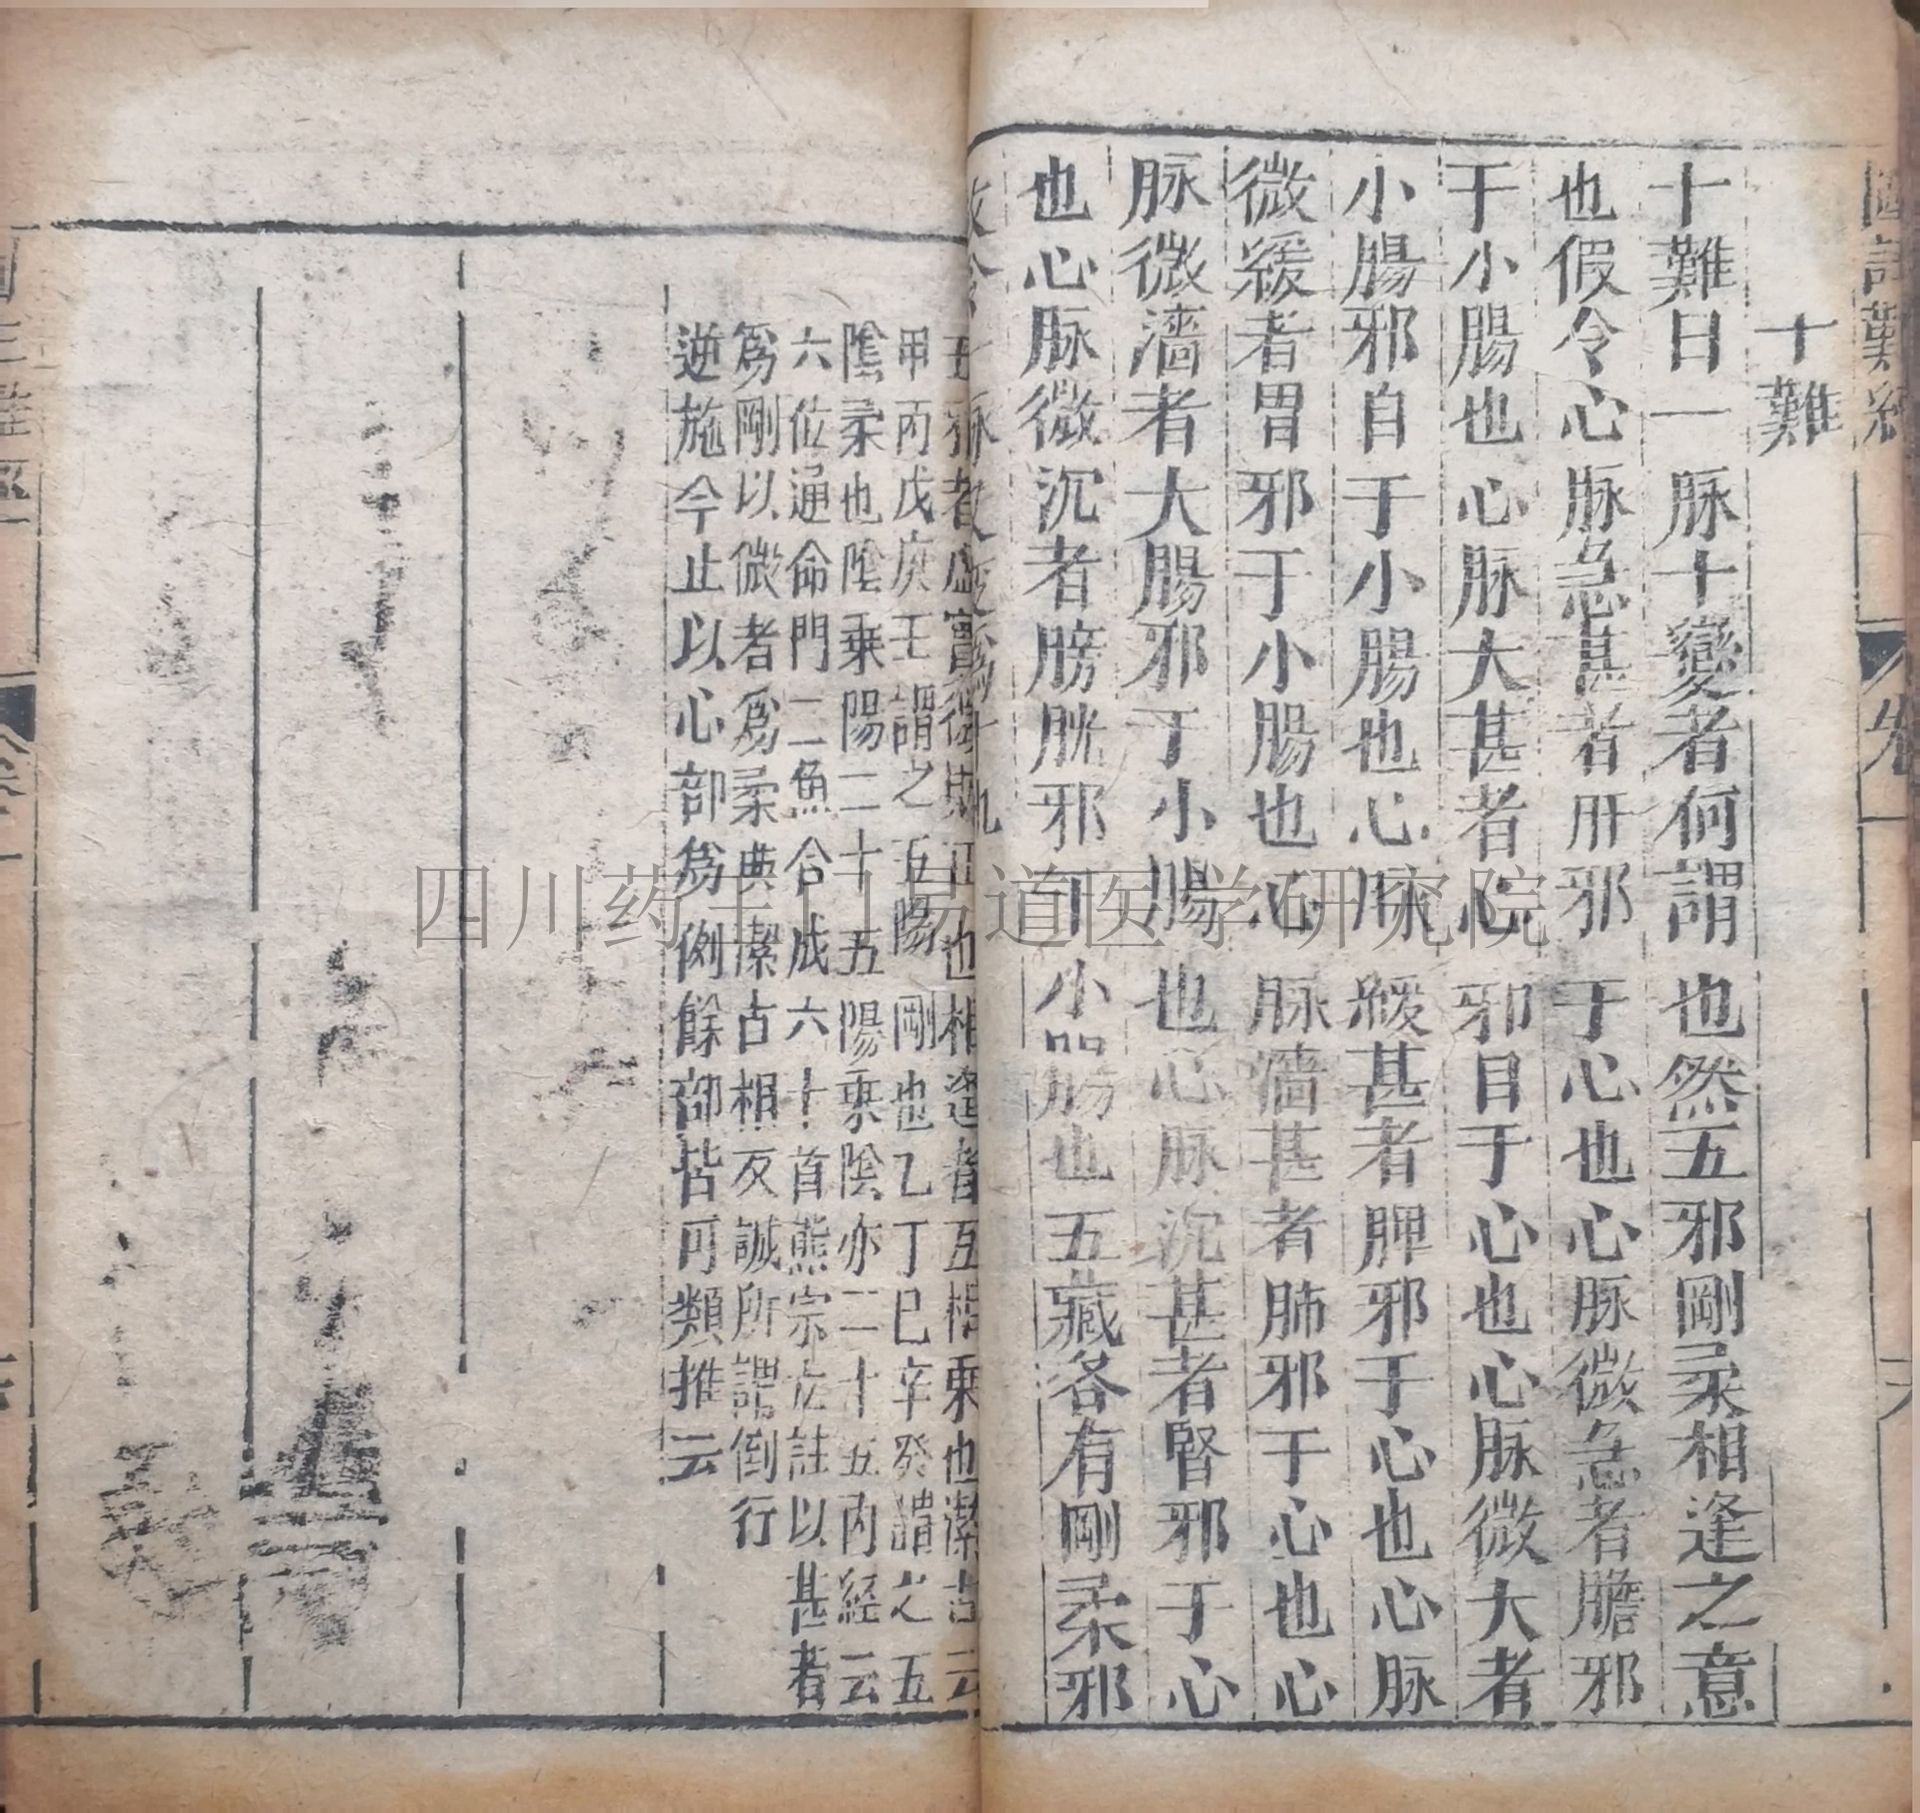 十難
十難曰一脉十變者何謂也然五邪剛柔相逢之意
也假令心脉急甚者肝邪于心也心脉微急者膽邪
于小腸也心脉大甚者心邪自于心也心脉微大者
小腸邪自于小腸也心脉緩甚者脾邪于心也心脉
微緩者胃邪于小腸也心脉濇甚者肺邪于心也心
脉微濇者大腸邪于小腸也心脉沉甚者腎邪于心
也心脉微沉者膀胱邪于小腸也五藏各有剛柔邪
五邪者虛實微賊正也相逢者互相乘也潔古云
甲丙戊庚壬謂之五陽剛也乙丁巳辛癸謂之五
陰柔也陰乗陽二十五陽乗陰亦二十五内経云
六位通命門二魚合成六十首熊宗立註以甚者
爲剛以微者爲柔典潔古相反誠所謂倒行
逆施今止以心部爲例餘部皆可類推云
四川药王门易道医学研究院